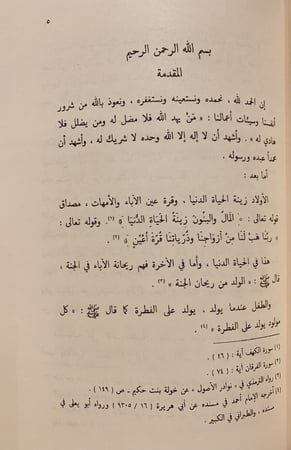 ٥
بسم الله الرحمن الرحيم
المقدمة
إن الحمد لله ، نحمده ونستعينه ونستغفره ، ونعوذ بالله من شرور
أنفسنا وسيئات أعمالنا : « مَنْ يهد الله فلا مضل له ومن يضلل فلا
هادي له » . وأشهد أن لا إله إلا الله وحده لا شريك له ، وأشهد أن
محمداً عبده ورسوله .
أما بعد :
الأولاد زينة الحياة الدنيا ، وقرة عين الآباء والأمهات ، مصداق
قوله تعالى : « المَالُ والبنُونَ زِينَةُ الحَيَاةِ الدُّنْيَا » (١). وقوله تعالى :
« رَبَّنَا هَبْ لَنَا مِنْ أزوَاجِنَا وذُرّيَاتِنَا قُرّةَ أعْيُنٍ » (٢) .
هذا في الحياة الدنيا ، وأما في الآخرة فهم ريحانة الآباء في الجنة ،
قال ﷺ : « الولد من ريحان الجنة » (٣) .
والطفل عندما يولد ، يولد على الفطرة كما قال ﷺ : « كل
مولود يولد على الفطرة » (٤) .
(١) سورة الكهف آية : ( ٤٦ ) .
(٢) سورة الفرقان آية : ( ٧٤ ) .
(٣) رواه الترمذي في ، نوادر الأصول ، عن خولة بنت حكيم - ص ( ١٤٩ ) .
(٤) أخرجه الإمام أحمد في مسنده عن أبي هريرة ( ١٦ / ٩٣٠٥ ) ورواه أبو يعلى في
مسنده ، والطبراني في الكبير .